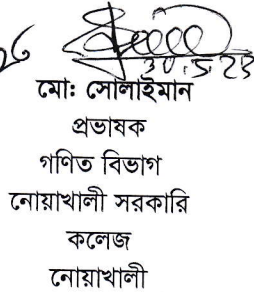 30.5.23
মো: সোলাইমান
প্রভাষক
গণিত বিভাগ
নোয়াখালী সরকারি
কলেজ
নোয়াখালী